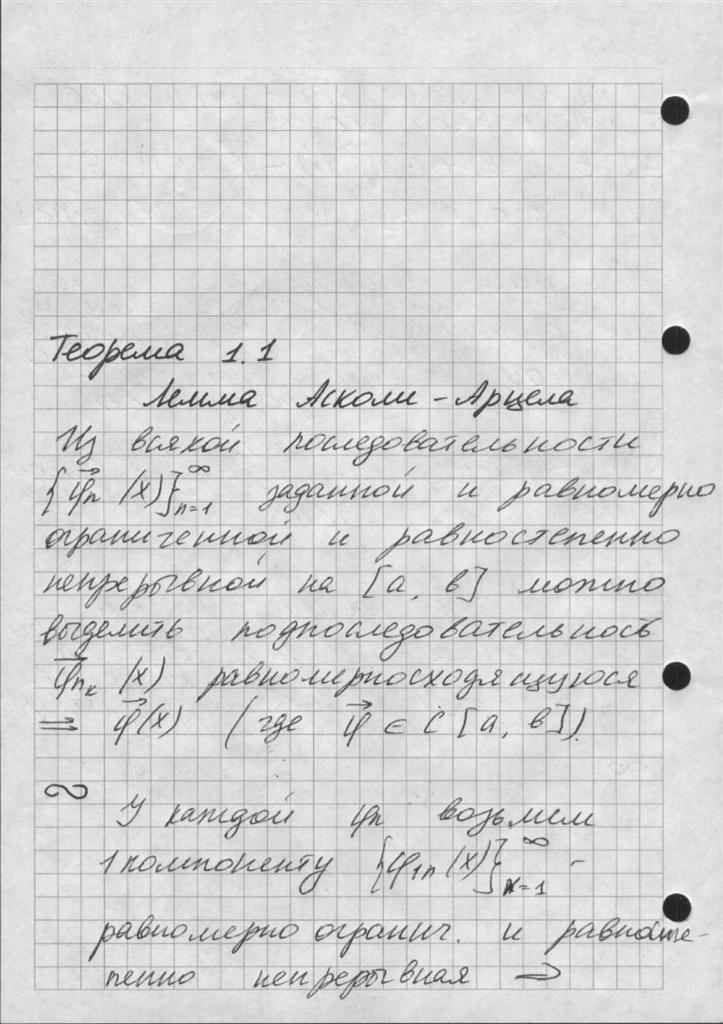 Теорема 1.1
Лемма Асколи - Арцела
Из всякой последовательности
{φ⃗n (x)}∞n=1 заданной и равномерно
ограниченной и равностепенно
непрерывной на [a, в] можно
выделить подпоследовательность
φ⃗nk (x) равномерносходящуюся
⇉ φ⃗(x) (где φ⃗ ∈ C [a, в]).
У каждой φn возьмем
1 компоненту {φ1n (x)}∞n=1 -
равномерно огранич. и равносте-
пенно непрерывная ⇒